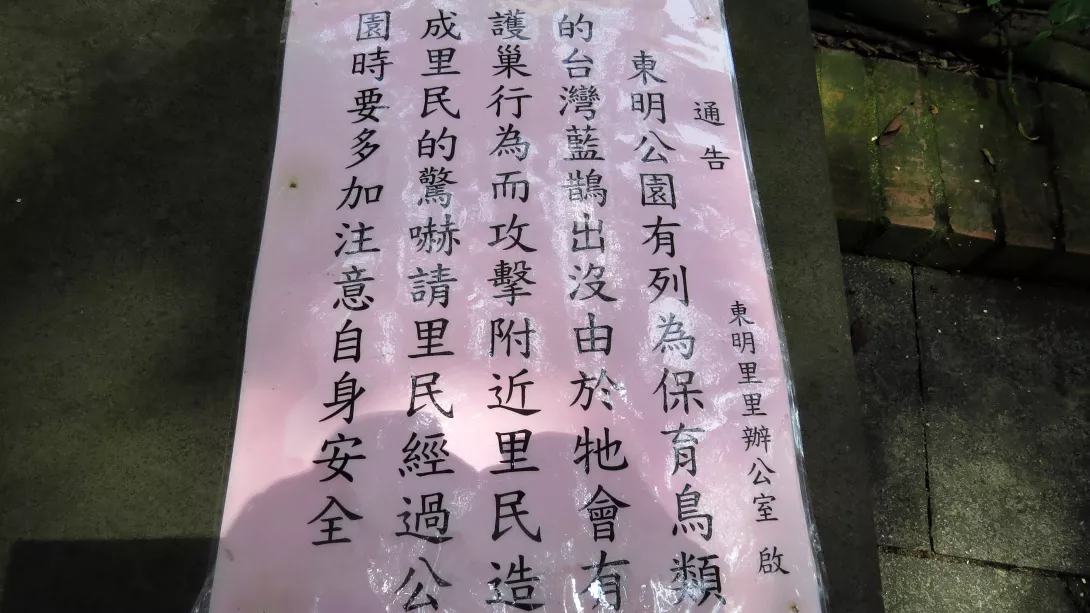 通告
東明里里辦公室 啟
東明公園有列為保育鳥類
的台灣藍鵲出沒由於牠會有
護巢行為而攻擊附近里民造
成里民的驚嚇請里民經過公
園時要多加注意自身安全